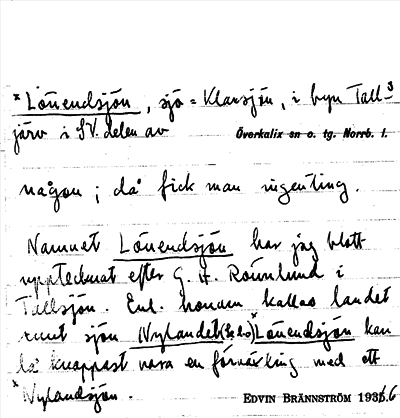 * Lönendsjön, sjö = Klarsjön, i byn Tall- 3
järv i SV. delen av Överkalix sn o. tg. Norrb. l.
någon; då fick man ingenting.
Namnet Lönendsjön har jag blott
upptecknat efter G. H. Rönnlund i
Tallsjön. Enl. honom kallas landet
runt sjön Nylandet *Lönendsjön kan
knappast vara en förväxling med ett
*Nylandsjön.
EDVIN BRÄNNSTRÖM 1936.